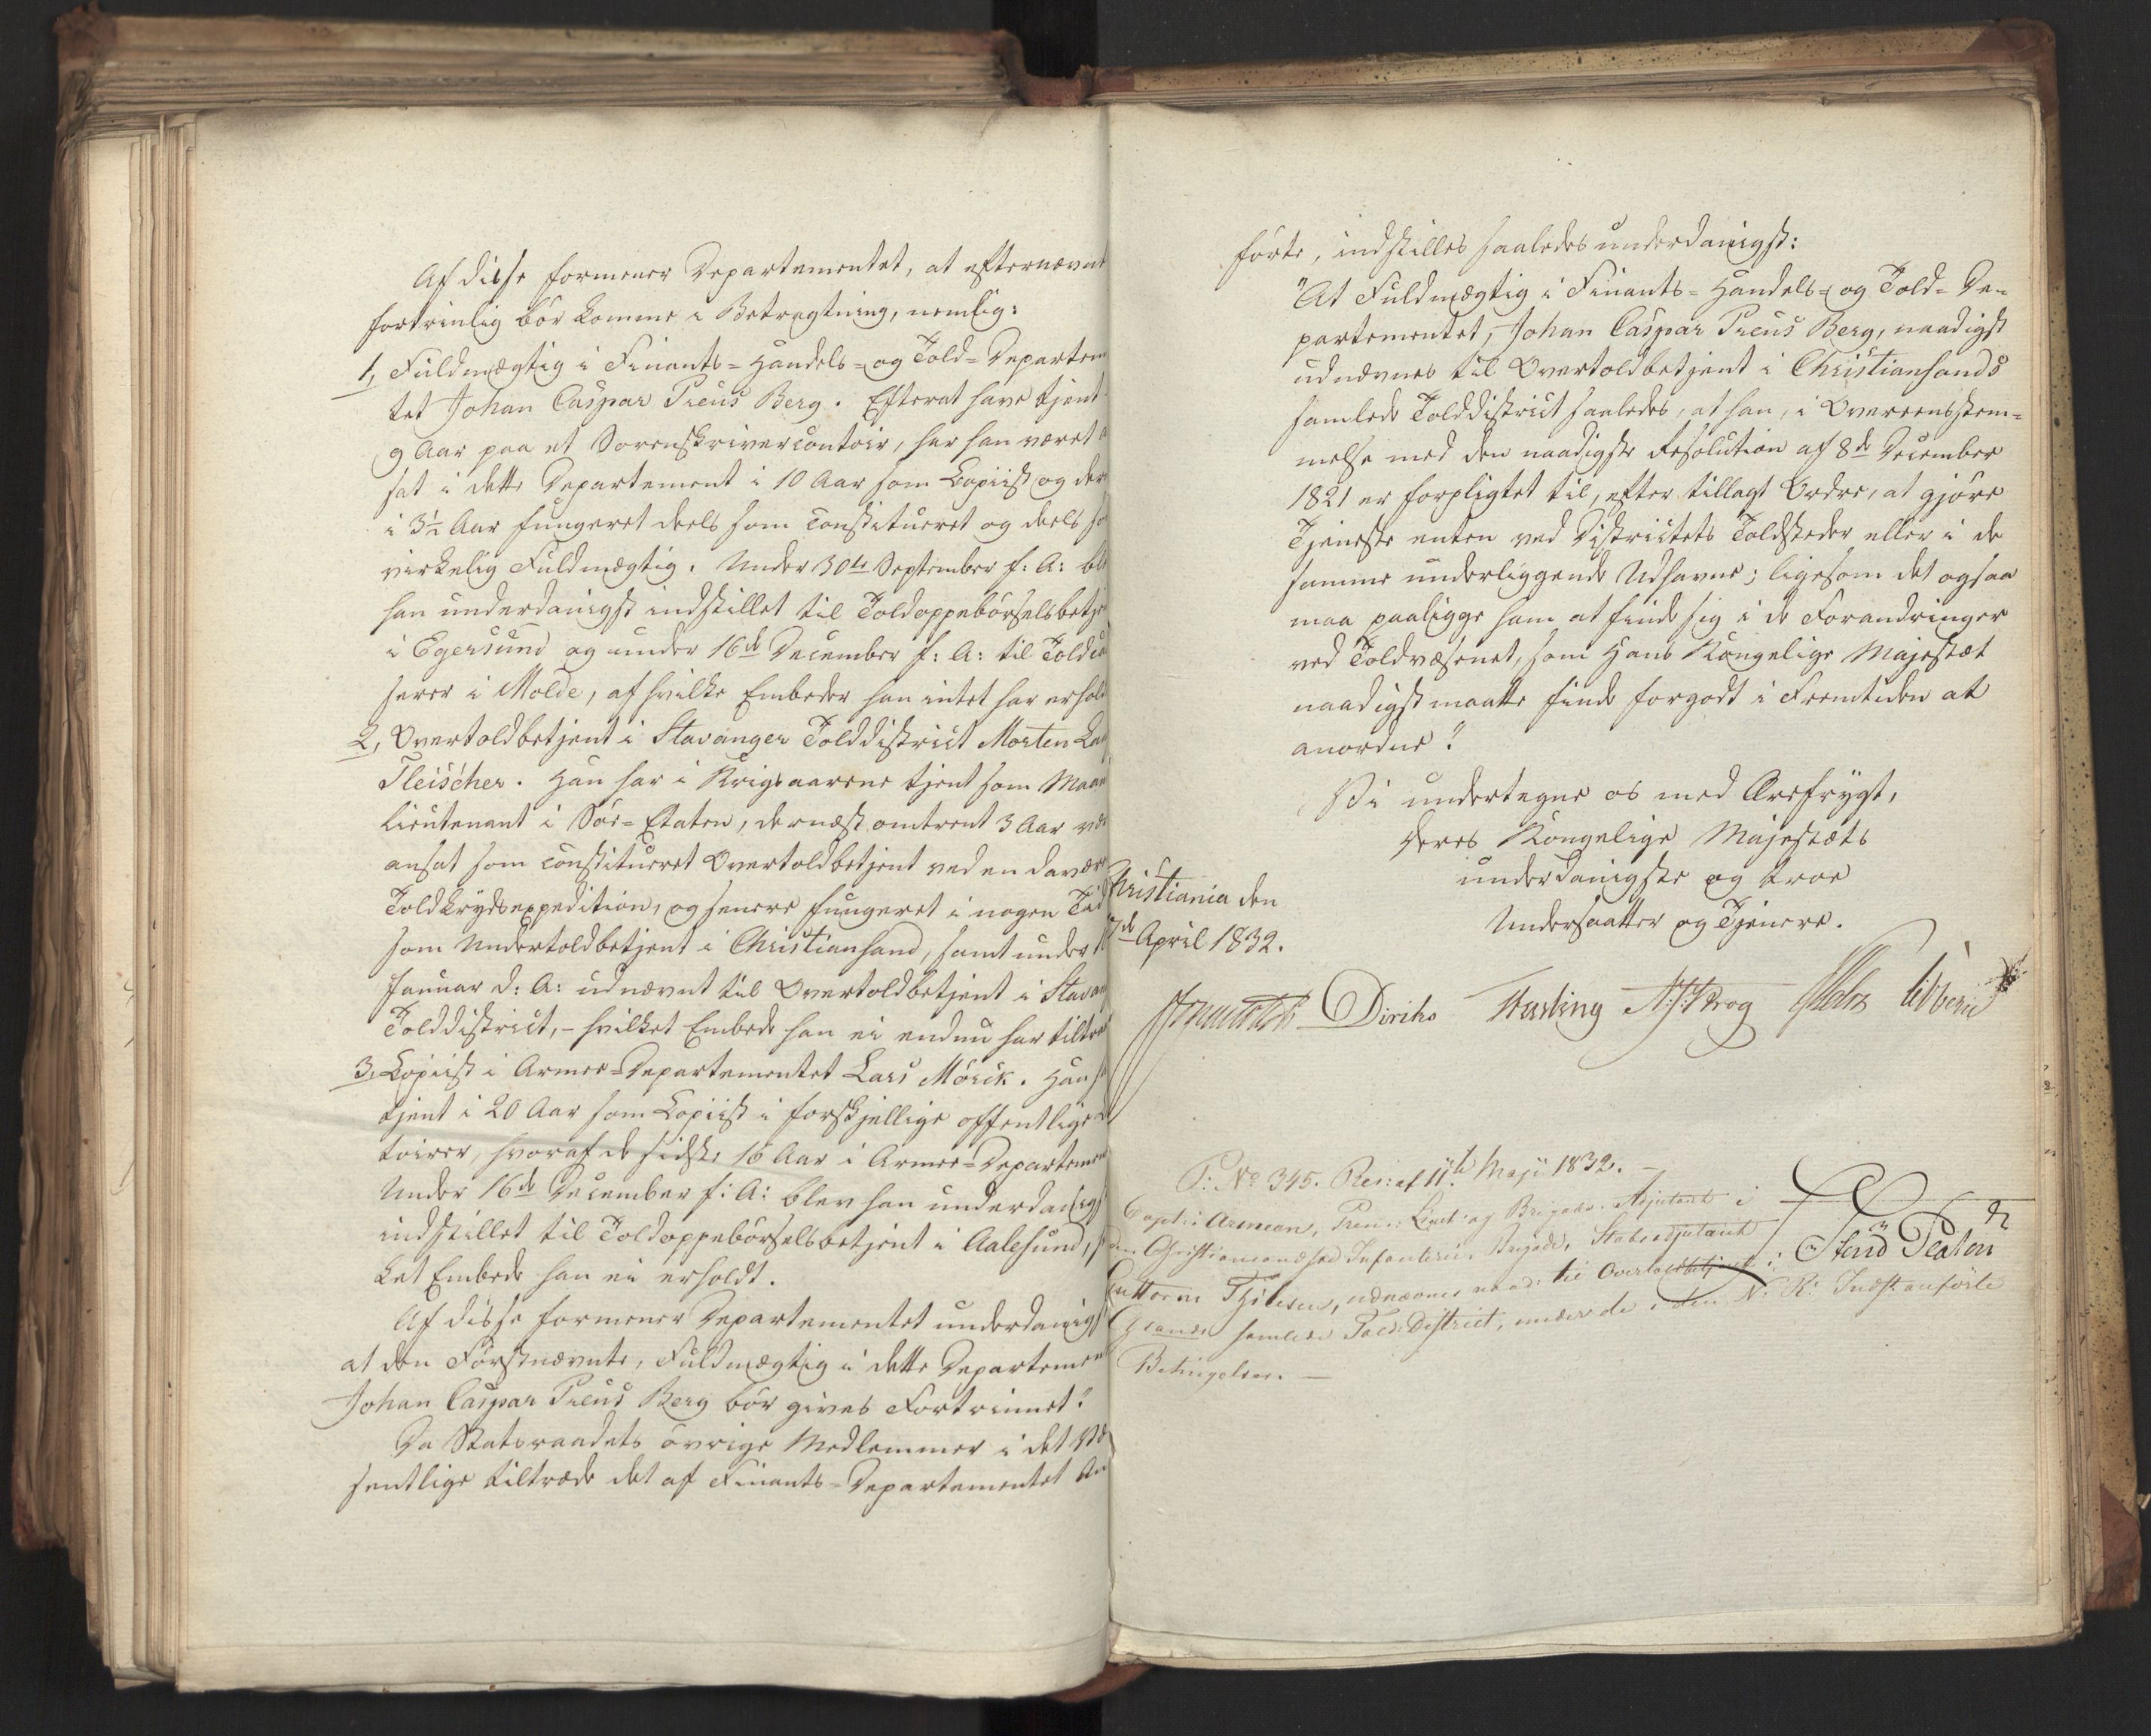 Af disse formener Departementet, at efternævnt
fortrinlig bör komme i Betragtning, nemlig:
1, Fuldmægtig i Finants- Handels- og Told-Departem
tet Johan Caspar Preus Berg. Efterat have tjent
9 Aar paa et Sorenskrivercontoir, har han været a
sat i dette Departement i 10 Aar som Copiist og der
i 3½ Aar fungeret deels som constitueret og deels so
virkelig Fuldmægtig. Under 30te September f: A: ble
han underdanigst indstillet til Toldoppebörselsbetje
i Egersund og under 16de December f: A: til Toldca
serer i Molde, af hvilke Embeder han intet har erhold
2, Overtoldbetjent i Stavanger Tolddistrict Morten
Fleischer. Han har i Krigsaarene tjent som Maan
Lieutenant i Söe-Etaten, dernæst omtrent 3 Aar væ
ansat som constitueret Overtoldbetjent ved en davær
Toldkrydsexpedition, og senere fungeret i nogen Tid
som Undertoldbetjent i Christiansand, samt under
Januar d: A: udnævnt til Overtoldbetjent i Stavan
Tolddistrict, - hvilket Embede han ei endnu har tiltraa
3, Copiist i Armee-Departementet Lars Mörck. Han ha
tjent i 20 Aar som Copiist i forskjellige offentlige
toirer, hvoraf de sidste 16 Aar i Armee-Departemen
Under 16de December f: A: blev han underdanigst
indstillet til Toldoppebörselsbetjent i Aalesund,
ket Embede han ei erholdt.
Af disse formener Departementet underdanigst
at den Förstnævnte, Fuldmægtig i dette Departemen
Johan Caspar Preus Berg bör gives Fortrinnet."
Da Statsraadets övrige Medlemmer i det Væ
sentlige tiltræde det af Finants-Departementet An
förte, indstilles saaledes underdanigst:
"At Fuldmægtig i Finants- Handels- og Told-De-
partementet, Johan Caspar Preus Berg, naadigst
udnævnes til Overtoldbetjent i Christiansands
samlede Tolddistrict saaledes, at han, i Overeensstem-
melse med den naadigste Resolution af 8de December
1821 er forpligtet til, efter tillagt Ordre, at gjöre
Tjeneste enten ved Districtets Toldsteder eller i de
samme underliggende Udhavne; ligesom det ogsaa
maa paaligge ham at finde sig i de Forandringer
ved Toldvæsenet, som Hans Kongelige Majestæt
naadigst maatte finde forgodt i Fremtiden at
anordne."
Vi undertegne os med Ærefrygt,
Deres Kongelige Majestæts
underdanigste og troe
Undersaatter og Tjenere.
Christiania den
17de April 1832.
Diriks Fasting Krog Holst Vibe
P: No 345. Res: af 11te Maji 1832. -
Capt: i Armeen, Prem: Lieut: og Brigade-Adjutant i
den Christiansandske Infanterie Brigade, Stabsadjutant
Guttorm Thilesen, udnævnes naad: til Overtoldbetjent i
samlede Told-District, under de i den N: R: Indst: anförte
Betingelser. -